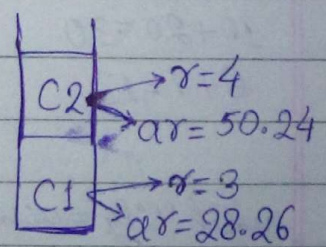 C2
r=4
ar=50.24
C1
r=3
ar=28.26